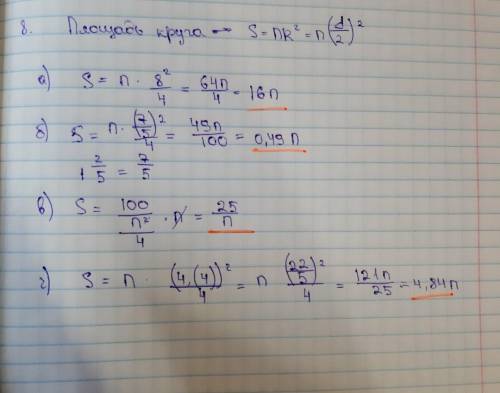 8. Площадь круга — S = πR² = π(d/2)²
а) S = π · 8²/4 = 64π/4 = 16π
б) S = π · (7/5)²/4 = 49π/100 = 0,49π
1 2/5 = 7/5
в) S = 100/π²/4 · π = 25/π
г) S = π · (4,(4))²/4 = π (22/5)²/4 = 121π/25 = 4,84π